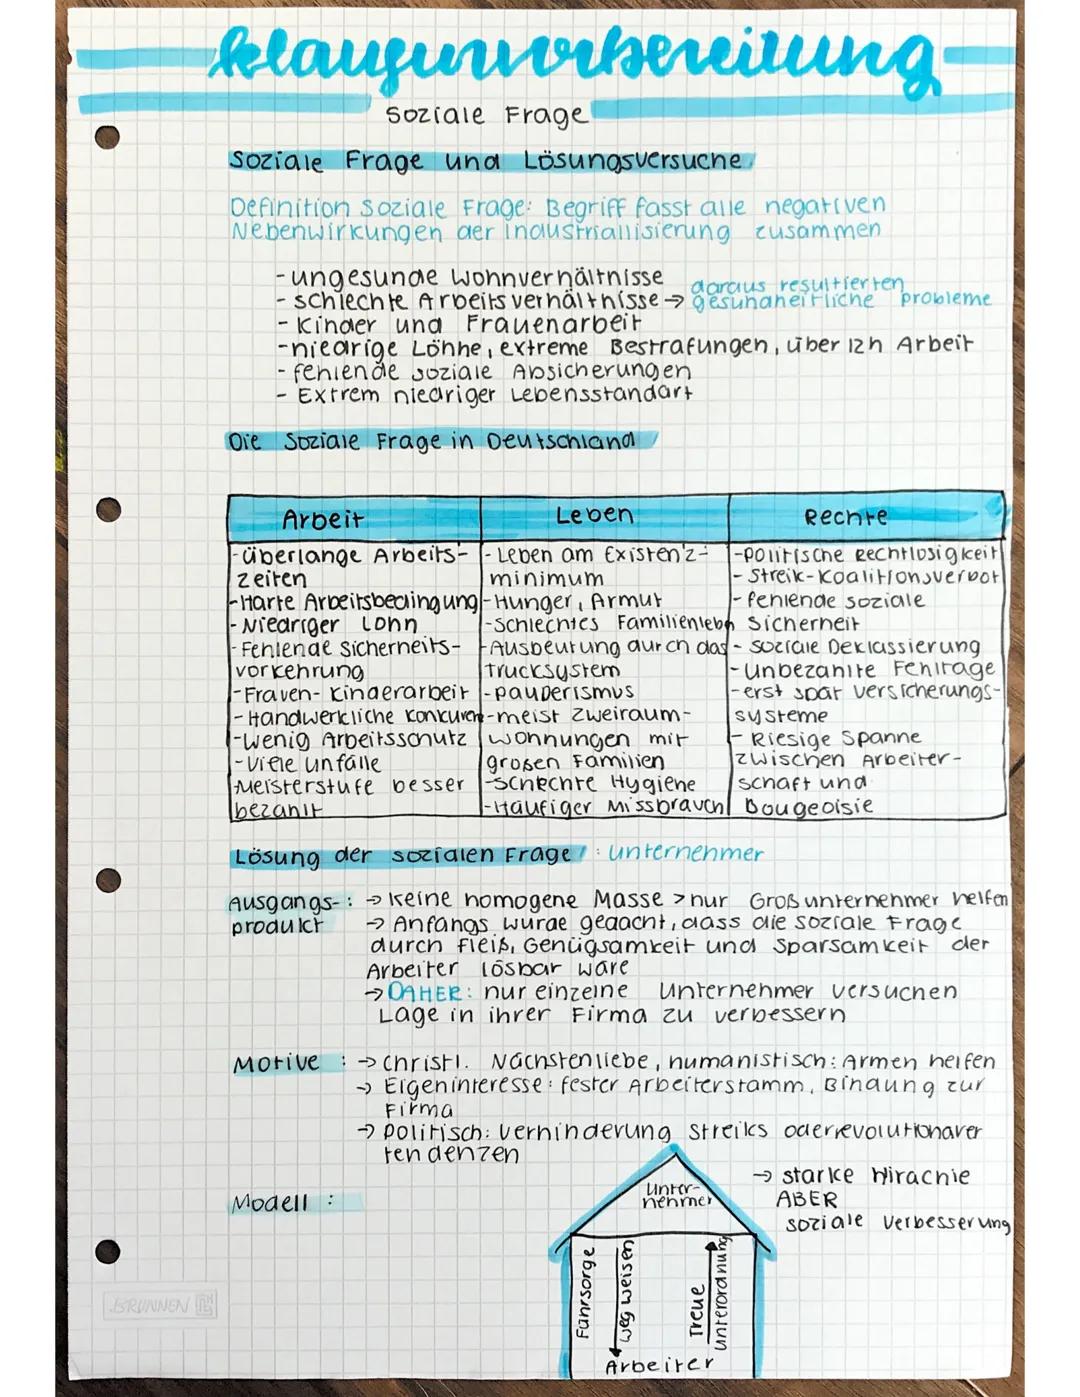 klausurvorbereitung
Soziale Frage
Soziale Frage und Lösungsversuche
Definition Soziale Frage: Begriff fasst alle negativen
Nebenwirkungen der Industriallisierung zusammen
- ungesunde Wohnverhältnisse
- schlechte Arbeitsverhältnisse → daraus resultierten gesundheitliche probleme
- Kinder und Frauenarbeit
- niedrige Löhne, extreme Bestrafungen, über 12h Arbeit
- fehlende soziale Absicherungen
- Extrem niedriger Lebensstandart
Die Soziale Frage in Deutschland
Arbeit
- überlange Arbeits-
zeiten
- Harte Arbeitsbedingung
- Niedriger Lohn
- Fehlende Sicherheits-
vorkehrung
- Frauen- Kinderarbeit
- Handwerkliche Konkuren
- Wenig Arbeitsschutz
- Viele unfälle
Meisterstufe besser
bezahlt
Leben
- Leben am Existenz-
minimum
- Hunger, Armut
- Schlechtes Familienlebn
- Ausbeutung durch das
Trucksystem
- pauperismus
- meist Zweiraum-
wohnungen mit
großen Familien
- Schlechte Hygiene
- Häufiger Missbrauch
Rechte
- politische Rechtlosigkeit
- Streik-Koalitionsverbot
- fehlende soziale
Sicherheit
- soziale Deklassierung
- Unbezahlte Fehltage
- erst spät versicherungs-
systeme
- Riesige Spanne
zwischen Arbeiter-
schaft und
Bougeoisie
Lösung der sozialen Frage : Unternehmer
Ausgangs- : → Keine homogene Masse > nur Großunternehmer helfen
produkt → Anfangs wurde gedacht, dass die soziale Frage
durch Fleiß, Genügsamkeit und Sparsamkeit der
Arbeiter lösbar wäre
→ DAHER: nur einzelne Unternehmer versuchen
Lage in ihrer Firma zu verbessern
Motive : → christl. Nächstenliebe, humanistisch: Armen helfen
→ Eigeninteresse: fester Arbeiterstamm, Bindung zur
Firma
→ politisch: Verhinderung Streiks oder revolutionärer
tendenzen
Modell :
Unter-
nehmer
Fürsorge
Weg weisen
Treue
Unterordnung
Arbeiter
→ starke Hirachie
ABER
soziale Verbesserung
BRUNNEN